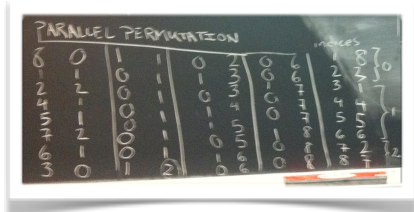 PARALLEL PERMUTATION
indices
8 0 1 1 0 2 0 6 1 8
1 1 0 1 1 3 0 6 2 3 0
2 2 0 1 0 3 1 7 3 1
4 1 0 1 1 4 0 7 4 4
5 1 0 1 1 5 0 7 5 5 1
7 2 0 1 0 5 1 8 6 6
6 1 0 1 1 6 0 8 7 2
3 0 1 2 0 6 0 8 8 7 2